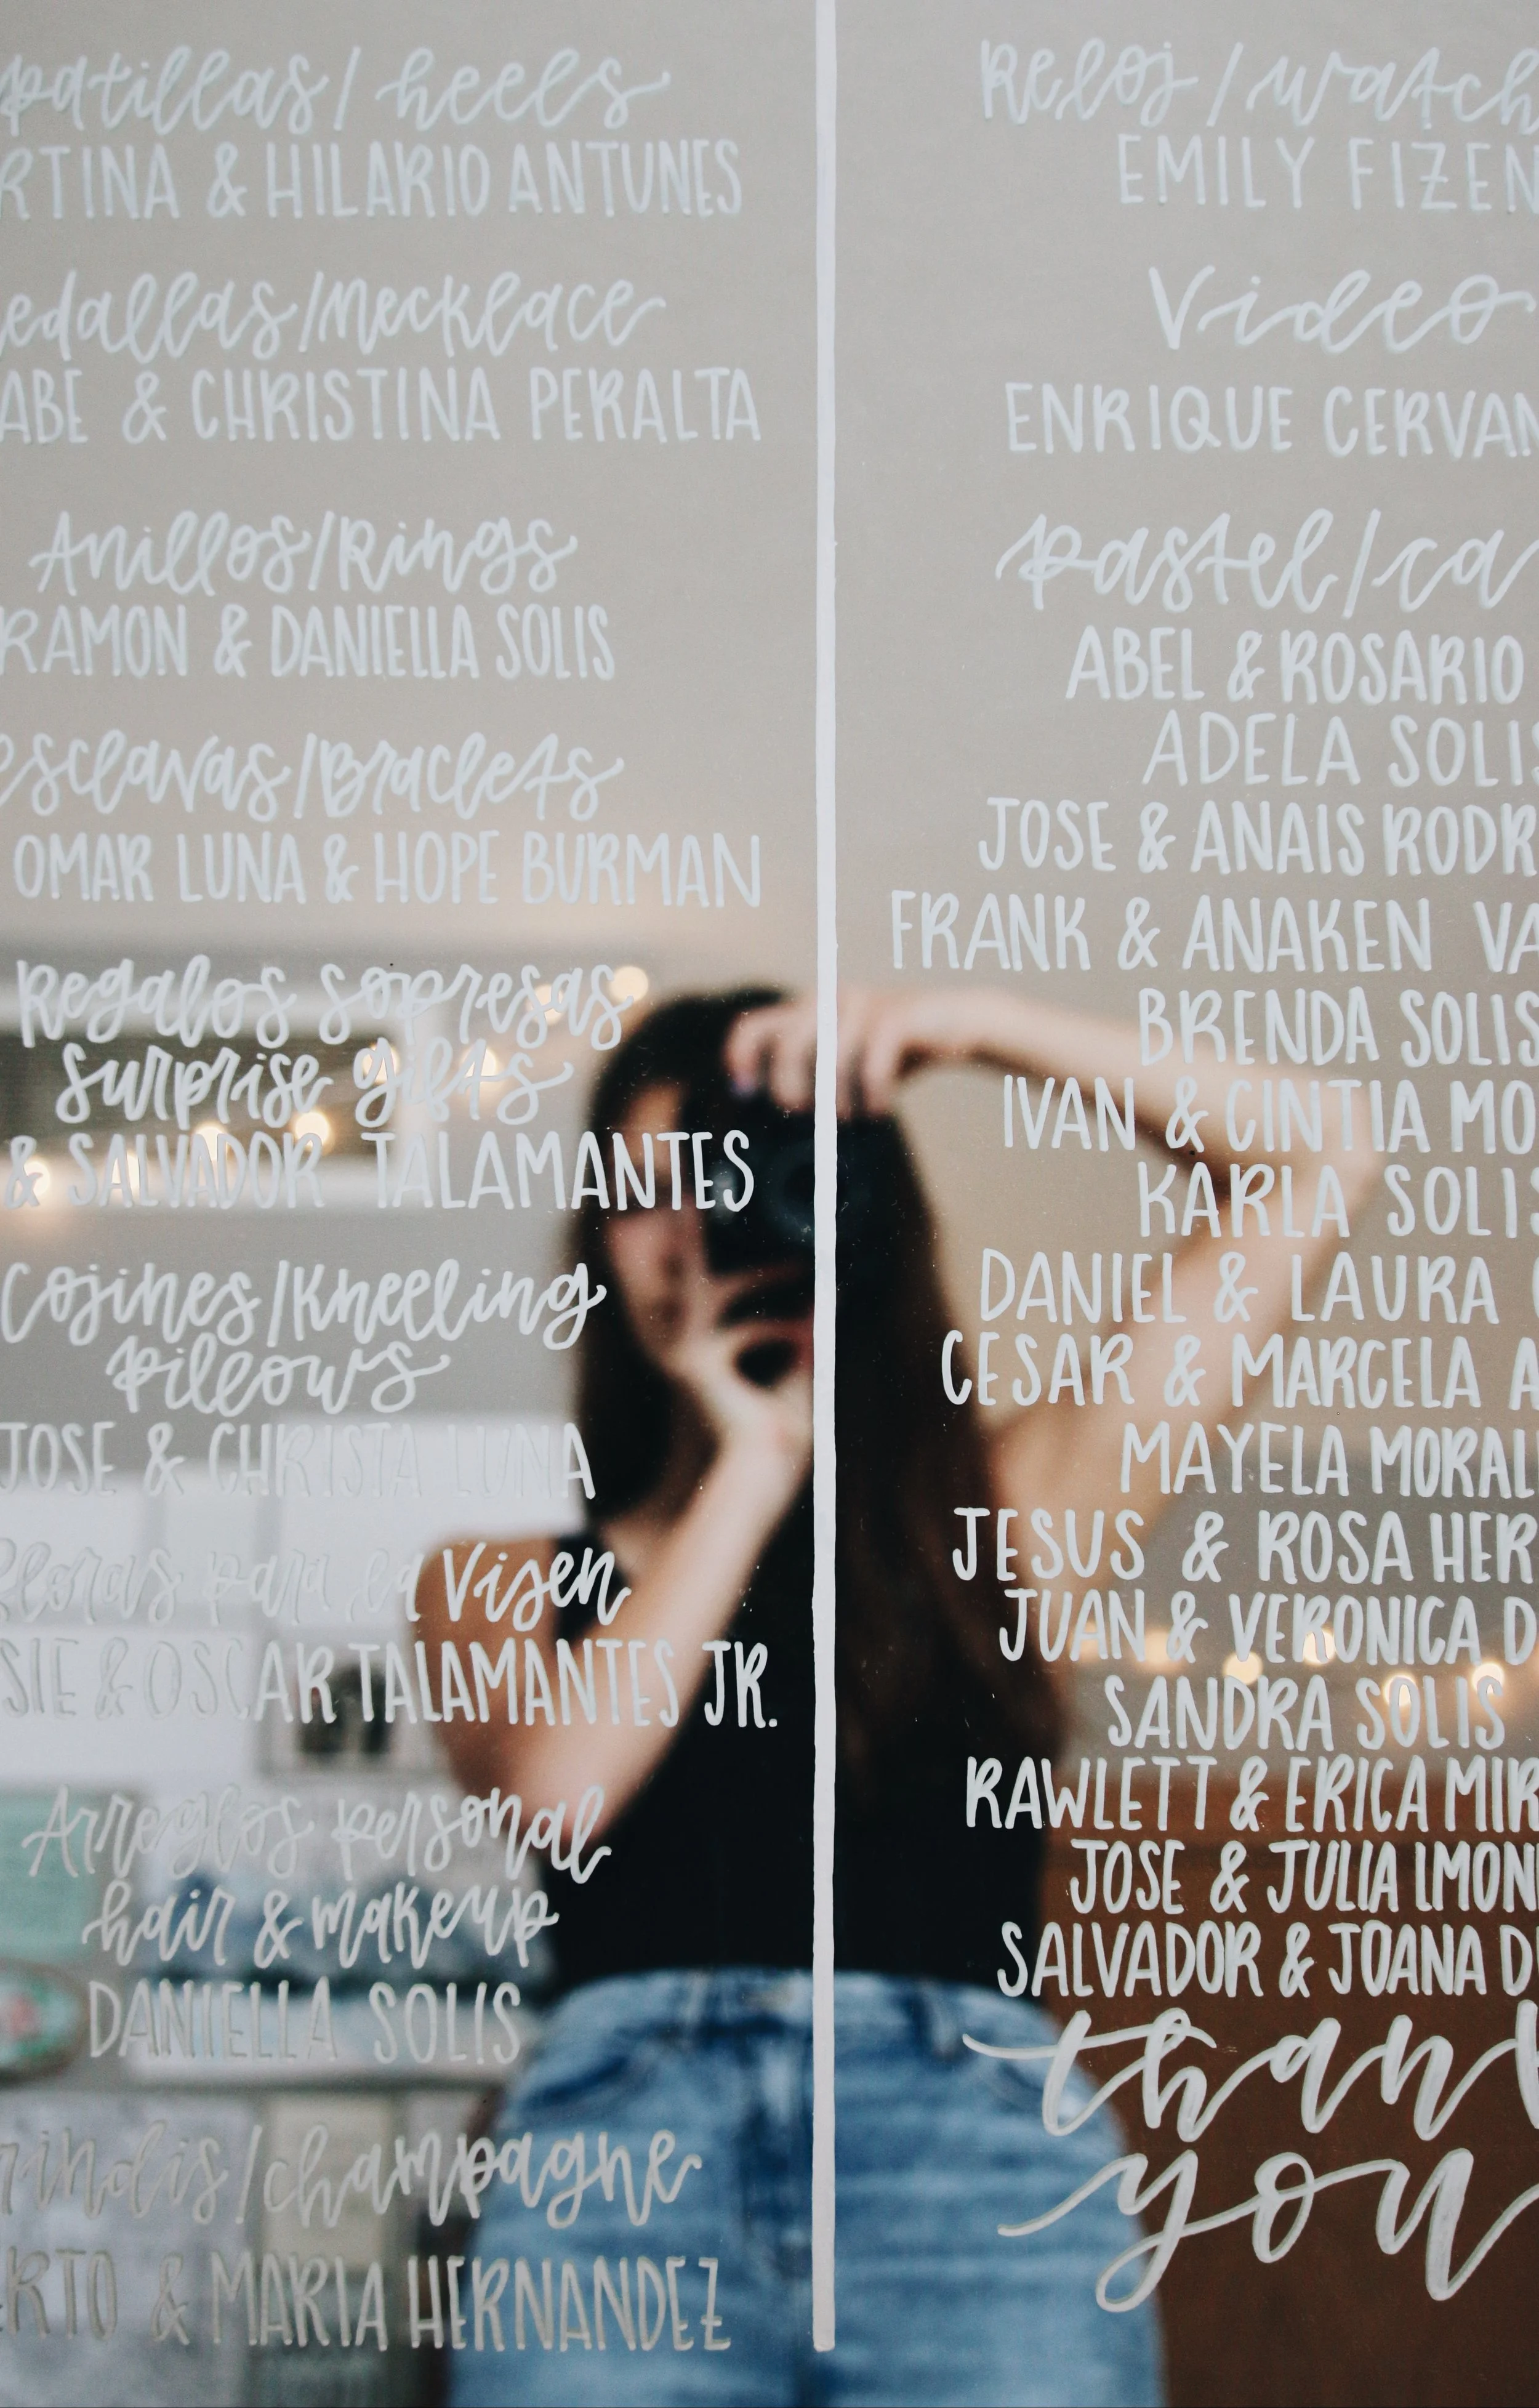 patillas/heels
RTINA & HILARIO ANTUNES
edallas/Necklace
ABE & CHRISTINA PERALTA
Anillos/Rings
RAMON & DANIELLA SOLIS
esclavas/Braclets
OMAR LUNA & HOPE BURMAN
Regalos sopresas
surprise gifts
& SALVADOR TALAMANTES
Cojines/Kneeling
pillows
JOSE & CHRISTA LUNA
floras para la Visen
SIE & OSCAR TALAMANTES JR.
Arreglos personal
hair & makeup
DANIELLA SOLIS
rindis/champagne
ERTO & MARIA HERNANDEZ
Reloj/watch
EMILY FIZEN
Video
ENRIQUE CERVAN
pastel/ca
ABEL & ROSARIO
ADELA SOLIS
JOSE & ANAIS RODR
FRANK & ANAKEN VA
BRENDA SOLIS
IVAN & CINTIA MO
KARLA SOLIS
DANIEL & LAURA
CESAR & MARCELA A
MAYELA MORAL
JESUS & ROSA HER
JUAN & VERONICA D
SANDRA SOLIS
RAWLETT & ERICA MIR
JOSE & JULIA LMON
SALVADOR & JOANA D
thank
you